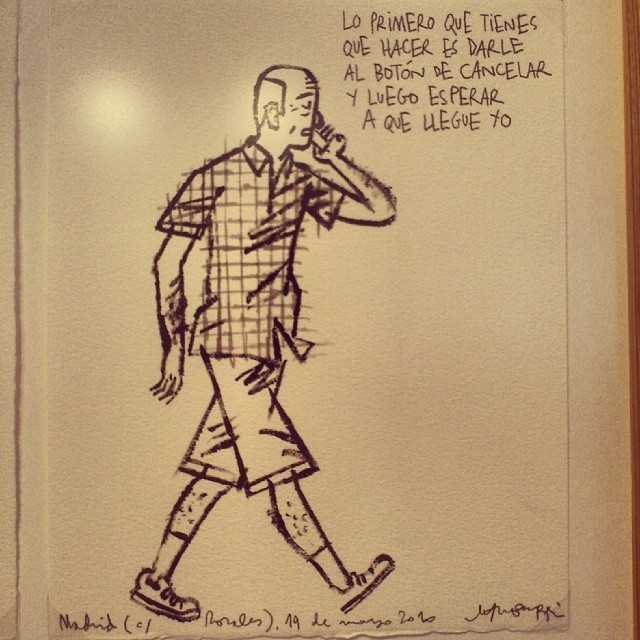 LO PRIMERO QUE TIENES
QUE HACER ES DARLE
AL BOTÓN DE CANCELAR
Y LUEGO ESPERAR
A QUE LLEGUE YO
Madrid (c/ Rosales), 19 de marzo 2010